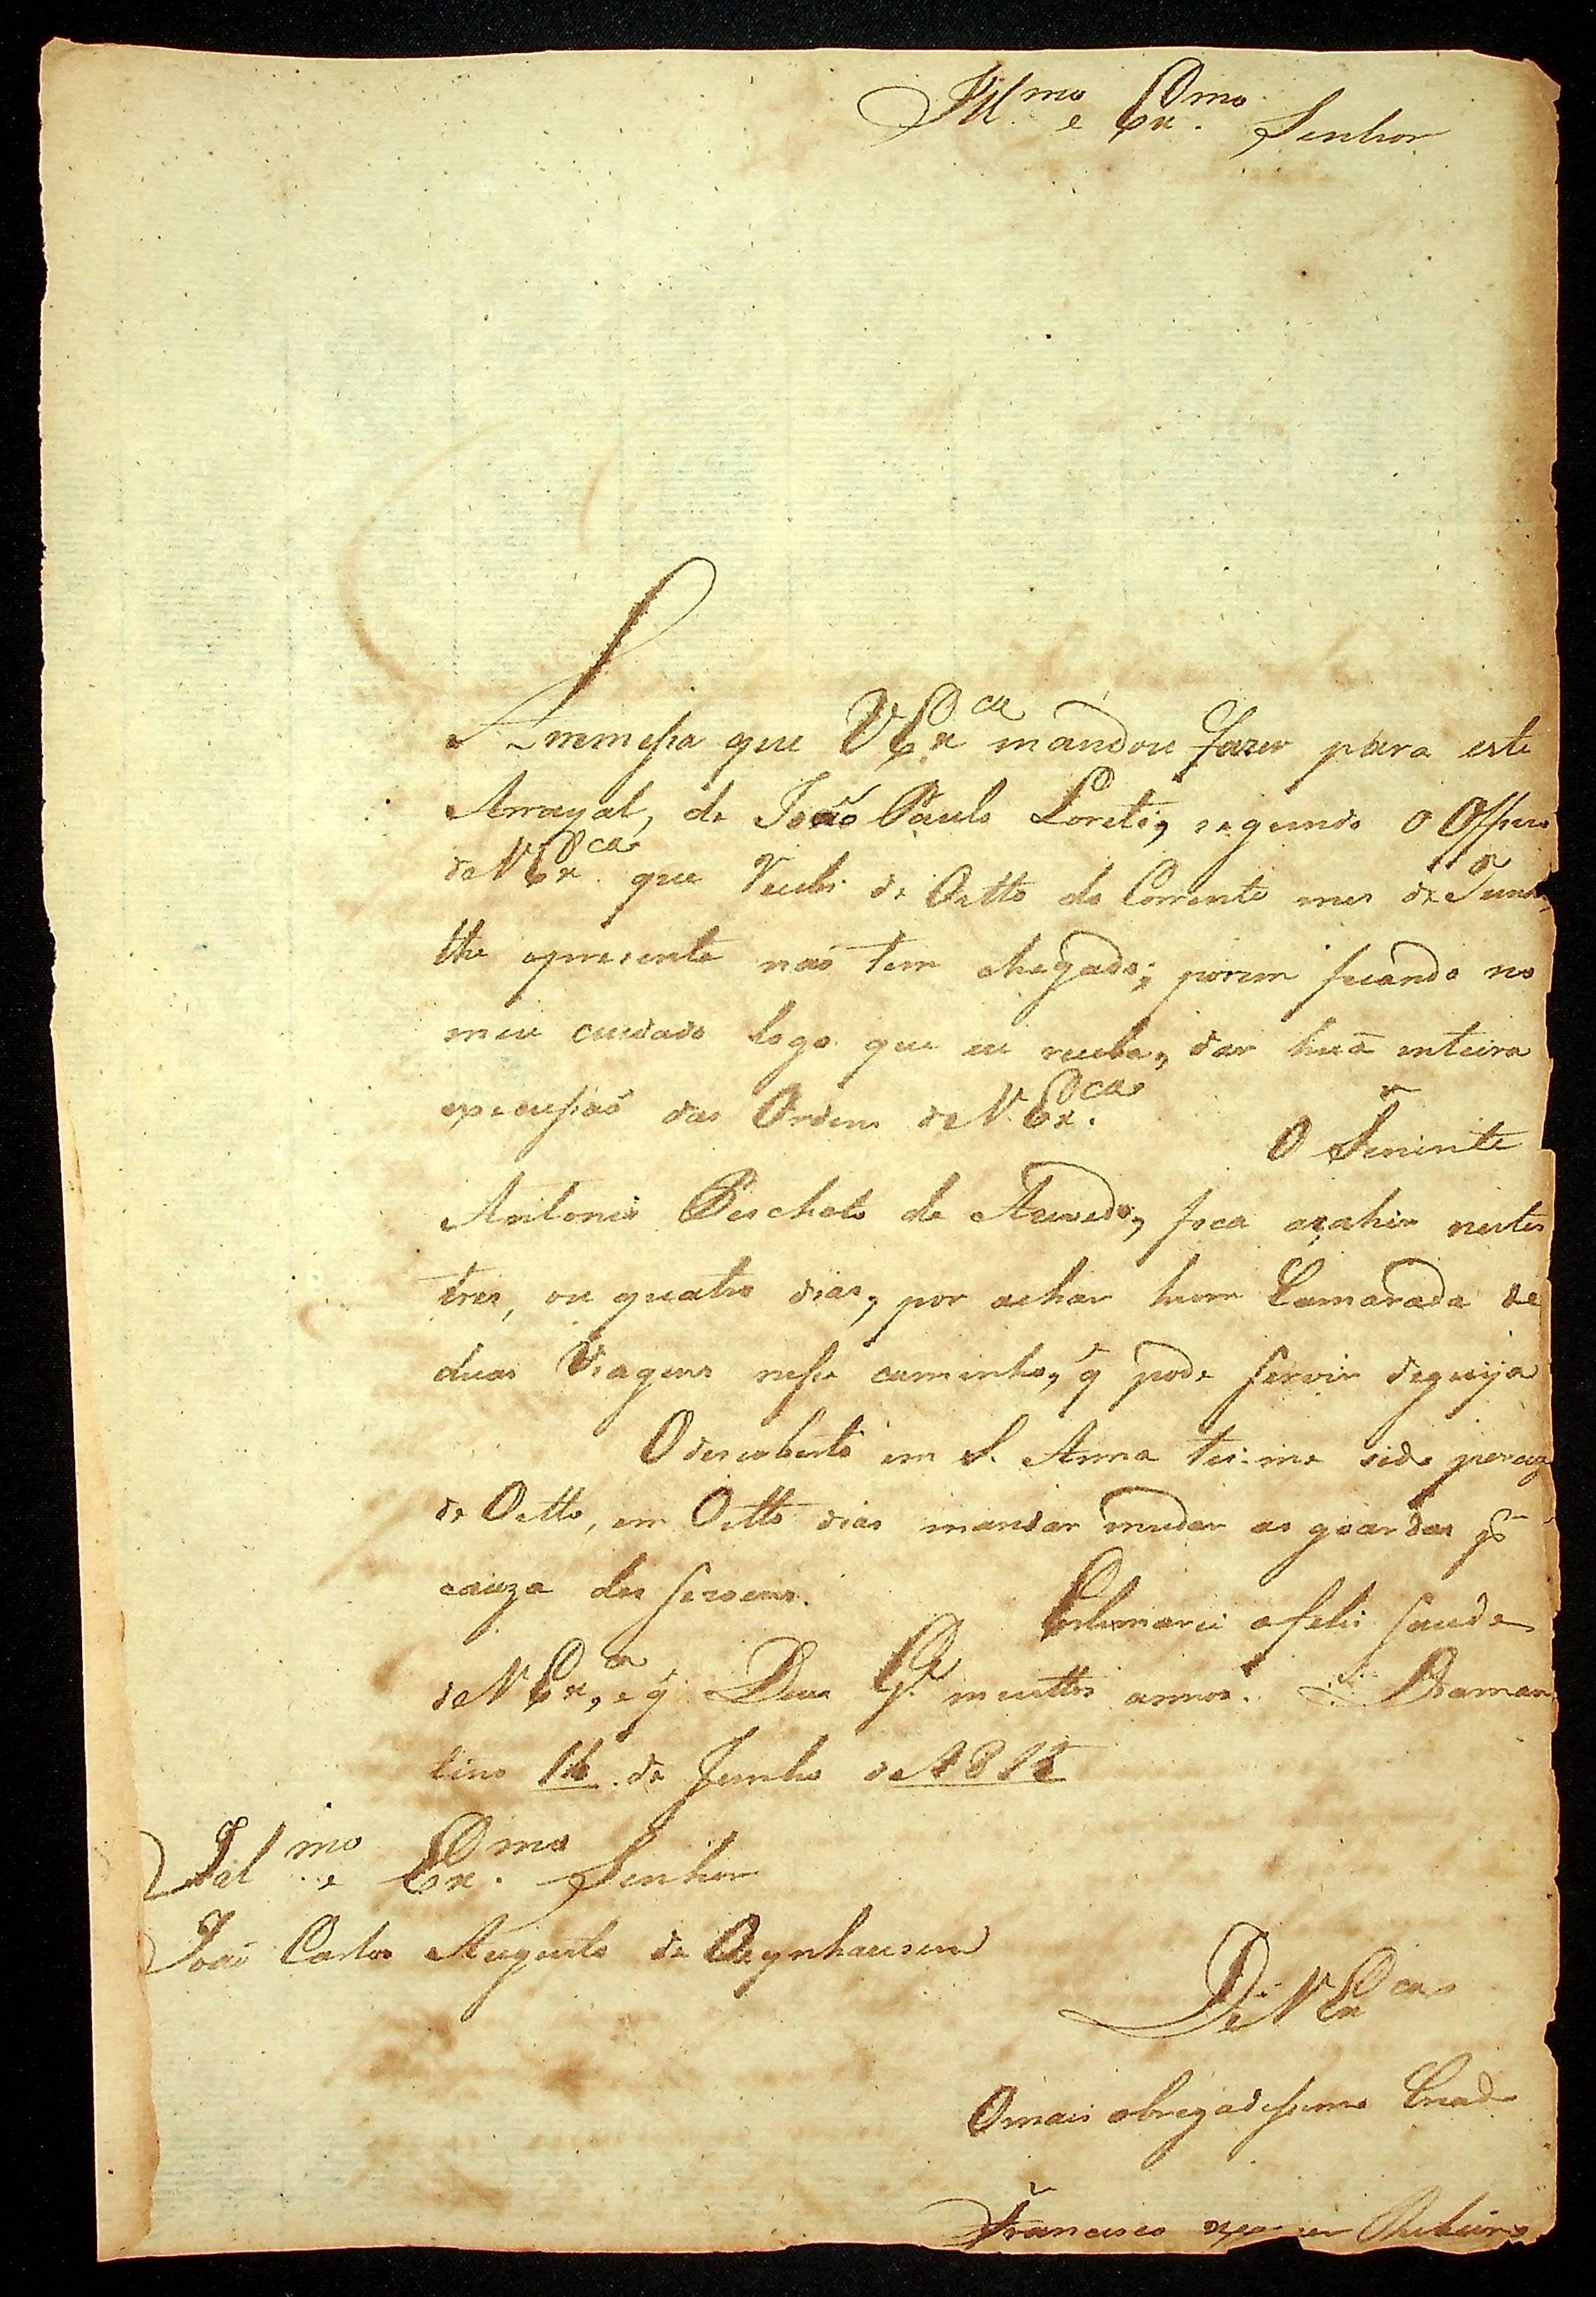 Ill.mo e Ex.mo Senhor
A remessa que V Ex.cia mandou fazer para este
Arrayal, de João Paulo Loreto, segundo o Officio
de V Ex.cia que Recebi de Oitto do Corrente mes de Junho,
the apresente não tem chegado; porem ficando no
meu cuidado logo que eu receba, dar huã inteira
execusão das Ordens de V. Ex.cia
O Tenente
Antonio Peichoto de Azevedo, fica asahir nestes
tres, ou quatro dias, por achar hum Camarada de
duas Viagens nesse caminho, q̃ pode servir deguija
O descoberto em S. Anna tei-me sido percizo
de Oitto, em Oitto dias mandar mudar as goardas p.r
cauza das
Estimarei afelis saude
de V Ex.a, e q̃ Deus G.de muittos annos. Diaman
tino 16 de Junho de 181
Ill.mo e Ex.mo Senhor
João Carlos Augusto de Oeynhausen
De V Ex.cia
O mais obrigadissimo Criado
Francisco Ribeiro